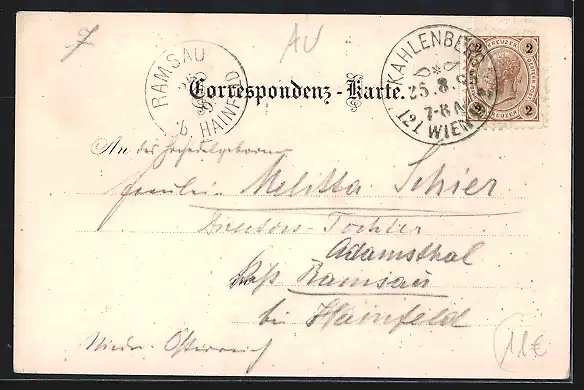 7
AU
RAMSAU
b. HAINFELD
KAHLENBERG
25.8.9
7-8A
121 WIEN
2 KREUZER 2
2 2
Correspondenz - Karte.
An des hochedelgeboren
Fräulein Melitta Schier
Directors-Tochter
Adamsthal
Ramsau
bei Hainfeld
Nieder-Österreich
11€